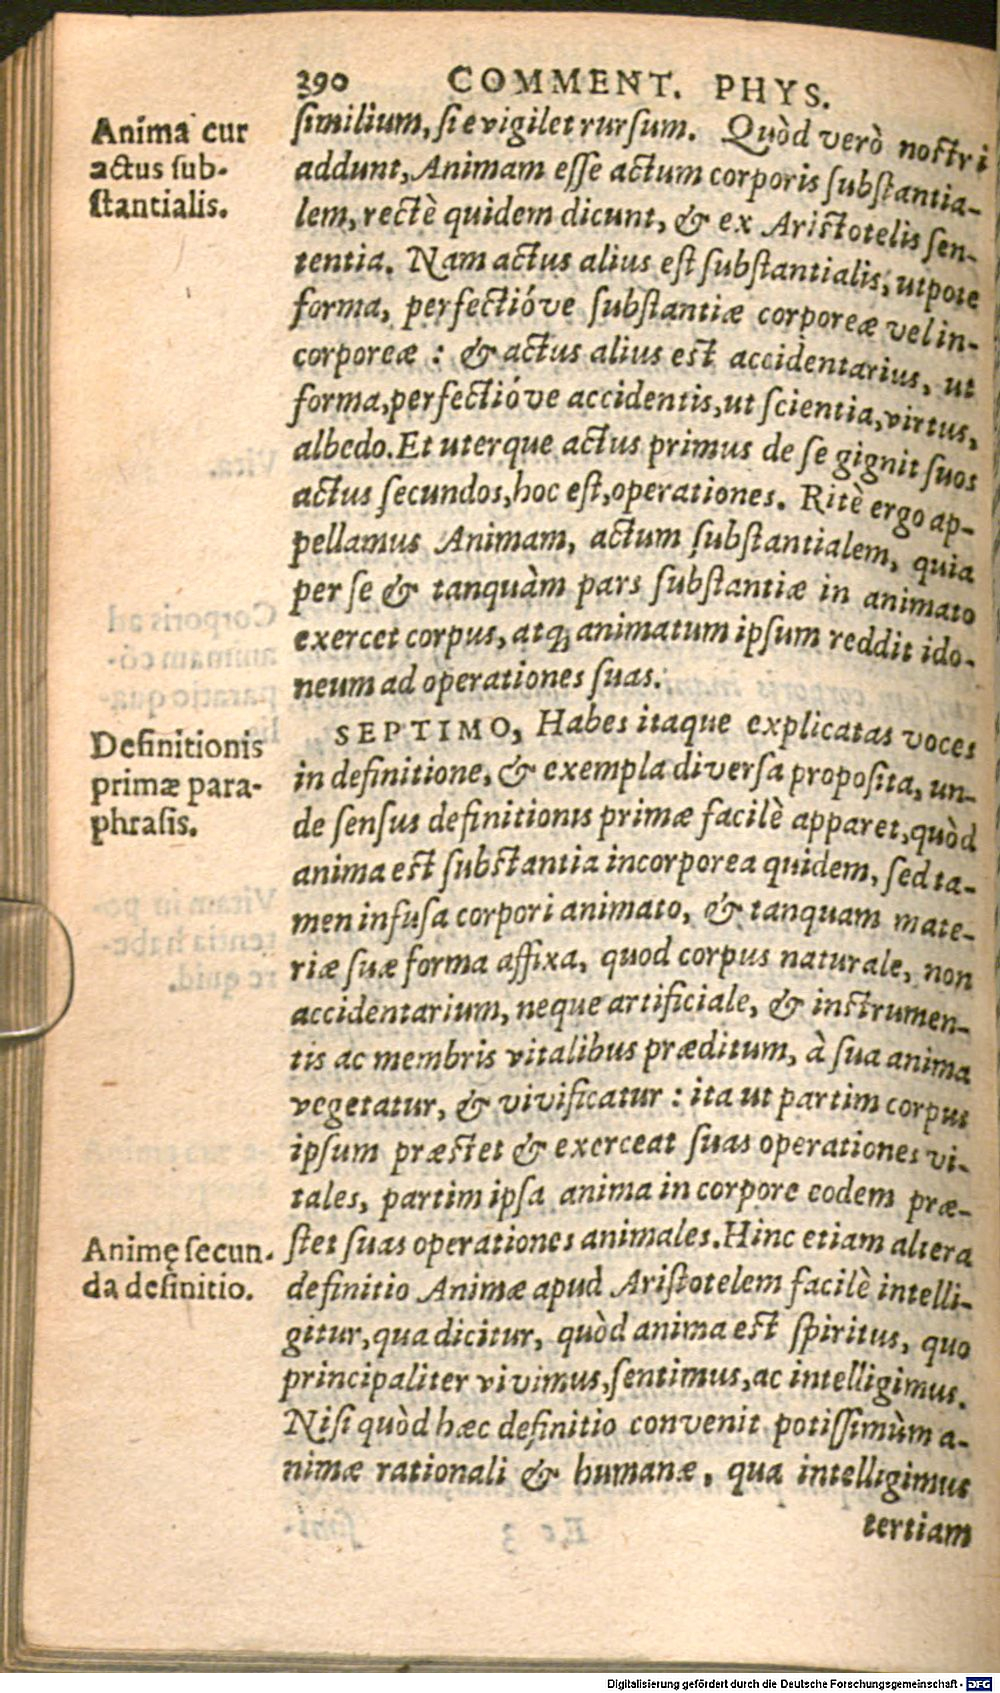 390 COMMENT. PHYS.
Anima cur
actus sub-
stantialis.
similium, si evigilet rursum. Quòd verò nostri
addunt, Animam esse actum corporis substantia-
lem, rectè quidem dicunt, & ex Aristotelis sen-
tentia. Nam actus alius est substantialis, utpote
forma, perfectióve substantiæ corporeæ vel in-
corporeæ : & actus alius est accidentarius, ut
forma, perfectióve accidentis, ut scientia, virtus,
albedo. Et uterque actus primus de se gignit suos
actus secundos, hoc est, operationes. Ritè ergo ap-
pellamus Animam, actum substantialem, quia
per se & tanquàm pars substantiæ in animato
exercet corpus, atq; animatum ipsum reddit ido-
neum ad operationes suas.
Definitionis
primæ para-
phrasis.
SEPTIMO, Habes itaque explicatas voces
in definitione, & exempla diversa proposita, un-
de sensus definitionis primæ facilè apparet, quòd
anima est substantia incorporea quidem, sed ta-
men infusa corpori animato, & tanquam mate-
riæ suæ forma affixa, quod corpus naturale, non
accidentarium, neque artificiale, & instrumen-
tis ac membris vitalibus præditum, à sua anima
vegetatur, & vivificatur : ita ut partim corpus
ipsum præstet & exerceat suas operationes vi-
tales, partim ipsa anima in corpore eodem præ-
Animę secun-
da definitio.
stet suas operationes animales. Hinc etiam altera
definitio Animæ apud Aristotelem facilè intelli-
gitur, qua dicitur, quòd anima est spiritus, quo
principaliter vivimus, sentimus, ac intelligimus.
Nisi quòd hæc definitio convenit potissimùm a-
nimæ rationali & humanæ, qua intelligimus
tertiam
Digitalisierung gefördert durch die Deutsche Forschungsgemeinschaft - DFG